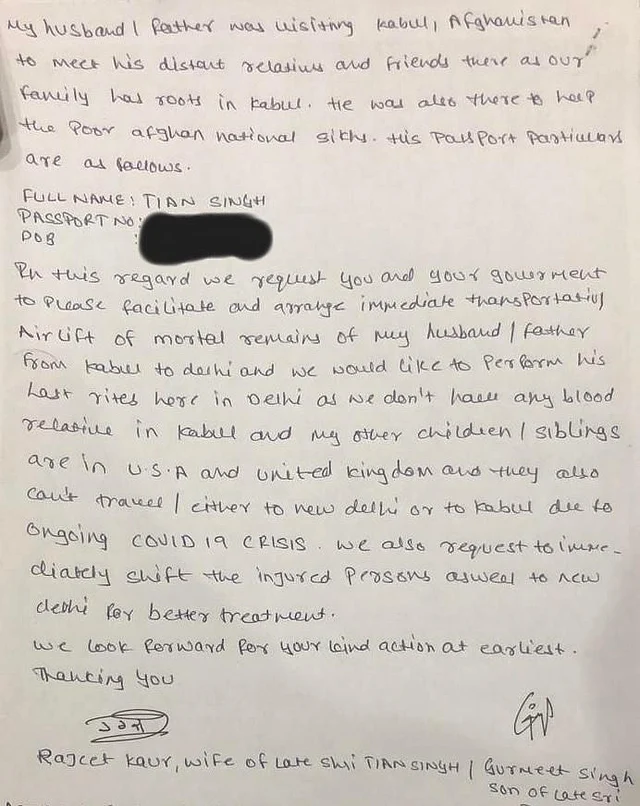 My husband / father was visiting Kabul, Afghanistan
to meet his distant relatives and friends there as our
family has roots in Kabul. He was also there to help
the poor afghan national sikhs. His Passport Particulars
are as follows.
FULL NAME: TIAN SINGH
PASSPORT NO:
DOB :
In this regard we request you and your goverment
to please facilitate and arrange immediate transportation/
Air lift of mortal remains of my husband / father
from Kabul to delhi and we would like to perform his
Last rites here in Delhi as we don't have any blood
relative in Kabul and my other children / siblings
are in U.S.A and united kingdom and they also
can't travel / either to new delhi or to Kabul due to
ongoing COVID 19 CRISIS. We also request to imme-
diately shift the injured persons asweal to new
delhi for better treatment.
We look forward for your kind action at earliest.
Thanking you
Rajeet Kaur, wife of Late Shri TIAN SINGH / Gurmeet Singh
son of Late Sri